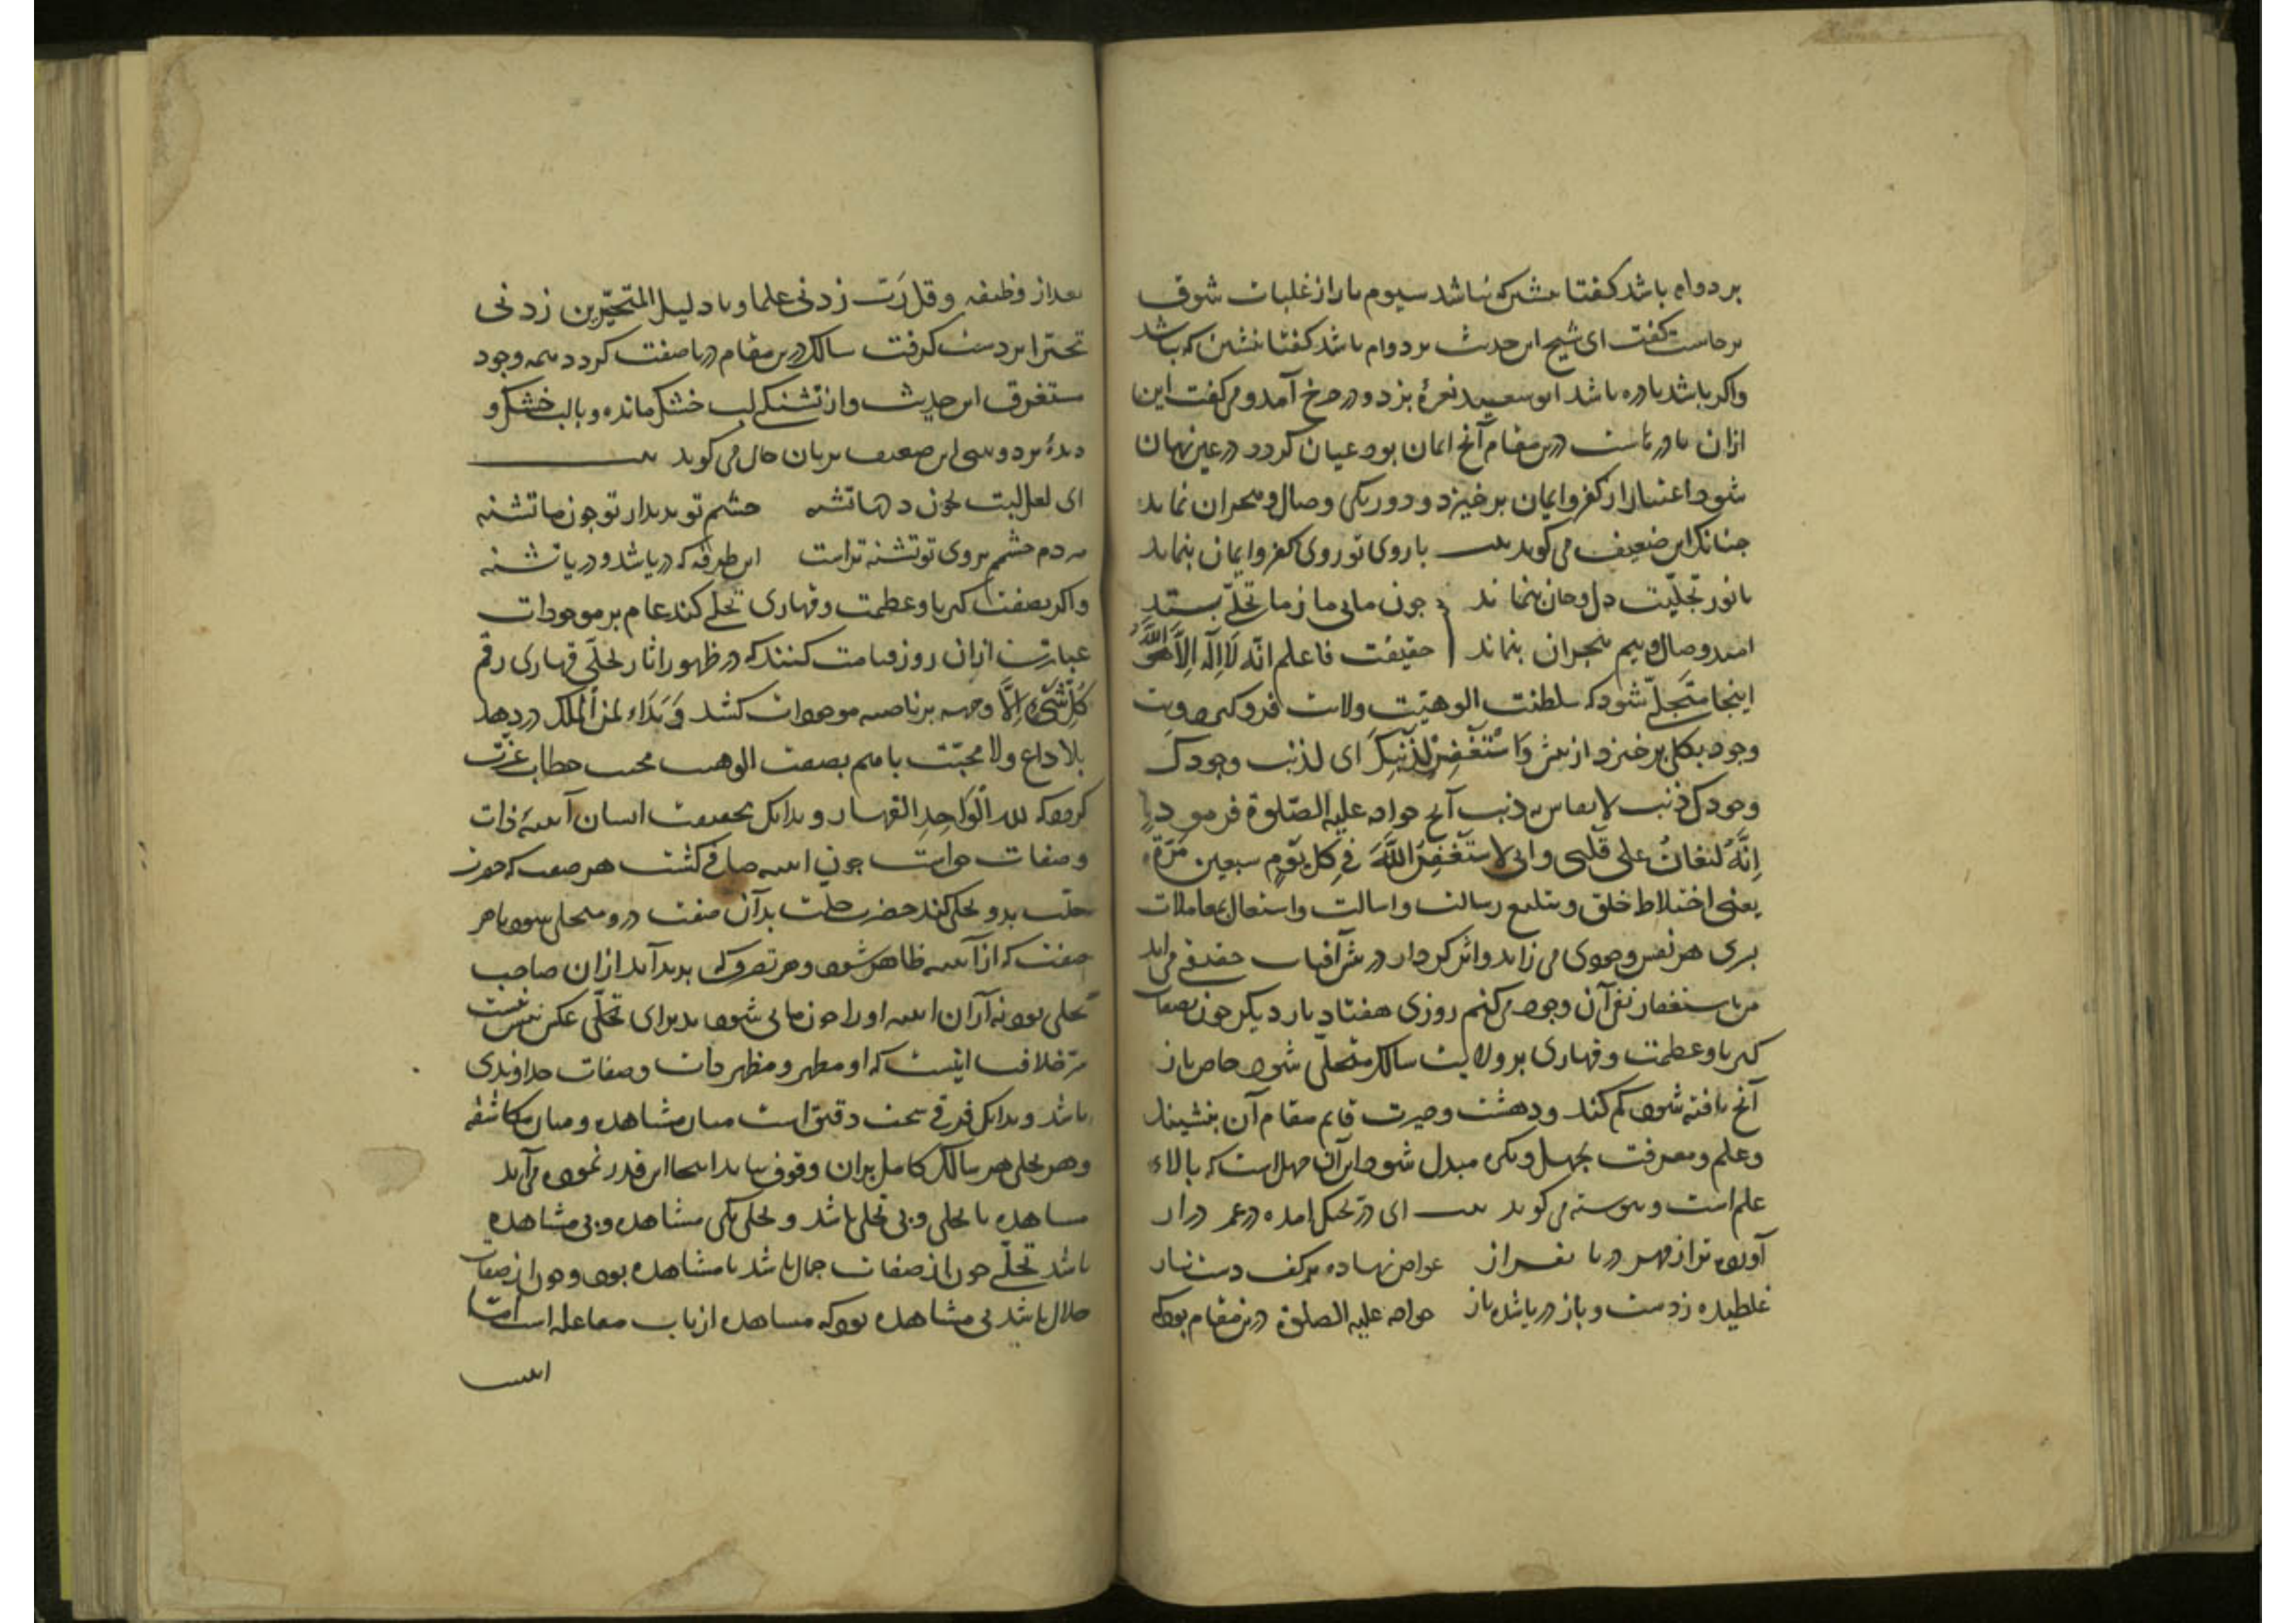 بر دوام باشد گفتا بنشین که نباشد سیوم بار از غلبات شوق
برخاست گفت ای شیخ این حدیث بر دوام باشد گفتا بنشین که نباشد
واگر باشد نادره باشد ابوسعید نعرهٔ بزد و در چرخ آمد و می گفت این
ازان نادرهاست درین مقام آنچ ایمان بود عیان گردد در عین نهان
شود اعتبار از کفر و ایمان برخیزد و دوریکی وصال و هجران نماند
چنانک این ضعیف می گوید بیت با روی تو روی کفر و ایمان بنماند
با نور تجلیت دل و جان بنماند چون مایی ما ز ما تجلی بستد
امید وصال و بیم هجران بنماند حقیقت فاعلم انّه لا اله الّا الله
اینجا متجلّی شود که سلطنت الوهیّت ولایت فرو گیرد و بت
وجود بکلی برخیزد از پیش وَاسْتَغْفِرْ لِذَنْبِكَ ای لذنب وجودک
وجودک ذنب لا یقاس به ذنب آنچ خواجه علیه الصّلوة فرمود
اِنَّهُ لَیُغَانُ علی قلبی وانی لاستَغْفِرُ اللّهَ فی کل یومٍ سبعین مَرّة
یعنی اختلاط خلق و تبلیغ رسالت واسالت و اشتغال بمعاملات
بشری هر نفس وجودی می زاید و اثر کردار در پیش آفتاب حقیقی می اید
من باستغفار نفی آن وجود می کنم روزی هفتاد بار دیگر چون بصفات
کبریا و عظمت و قهاری بر ولایت سالک متجلّی شود خاص باز
آنچ یافته شود گم کند و دهشت و حیرت قایم مقام آن بنشیند
و علم و معرفت بجهل و نکره مبدل شود این آن جهل است که بالاء
علم است و پیوسته می گوید بیت ای در تحکل امده در عمر دراز
آورده ترا ز قهر دریا بفراز غواص نهاده بر کف دست نیاز
غلطیده ز دست و باز دریا شده باز خواجه علیه الصلوة درین مقام بود که
بعد از وظیفه و قل رَبّ زدنی علما ورد یا دلیل المتحیّرین زدنی
تحیّرا بر دست گرفت سالک درین مقام دریا صفت گردد همه وجود
مستغرق این حدیث و از تشنگی لب خشک مانده و با لب خشک و
دیدهٔ تر دو بیتی این ضعیف بزبان حال می گوید بیت
ای لعل لبت بخون دلها تشنه چشم تو بدیدار تو چون ما تشنه
مردم چشمم بروی تو تشنه تراست این طرفه که دریا شد و دریا تشنه
واگر بصفت کبریا و عظمت و قهاری تجلی کند عام بر موجودات
عبارت ازان روز قیامت کنند که در ظهور اثار تجلّی قهاری رقم
کُلُّ شَیْءٍ اِلَّا وجهه بر ناصیه موجودات کشد وَ نِداء لمن الملک در دهد
بلا داع ولا مجیب تا هم بصفت الوهیت مجیب خطاب عزّت
گردد که للّه الْوَاحِدِ القهار و بدانک بحقیقت انسان آینهٔ ذات
و صفات خداست چون اینه صافی گشت هر صفت که حضرت
خواهد بدو تجلی کند حضرت جلت بدآن صفت درو متجلی شود تا هر
صفت که از آینه ظاهر شود و هر تصرف که پدید آید ازان صاحب
تجلی بود نه آزان اینه او را چون صافی شود پذیرای تجلّی عکس بیش نیست
سرّ خلافت اینست که او مظهر و مُظهر ذات و صفات خداوندی
باشد و بدانک فرقی سخت دقیق است میان مشاهده و میان مکاشفه
و هر تجلی هر سالک کامل بران وقوف نیابد اینجا این قدر نموده می آید
مشاهده با تجلی و بی تجلی باشد و تجلی بکی مشاهده و بی مشاهده
باشد تجلّی چون از صفات جمال باشد با مشاهده بود و چون از صفات
جلال باشد بی مشاهده بود که مشاهده از باب مفاعله است